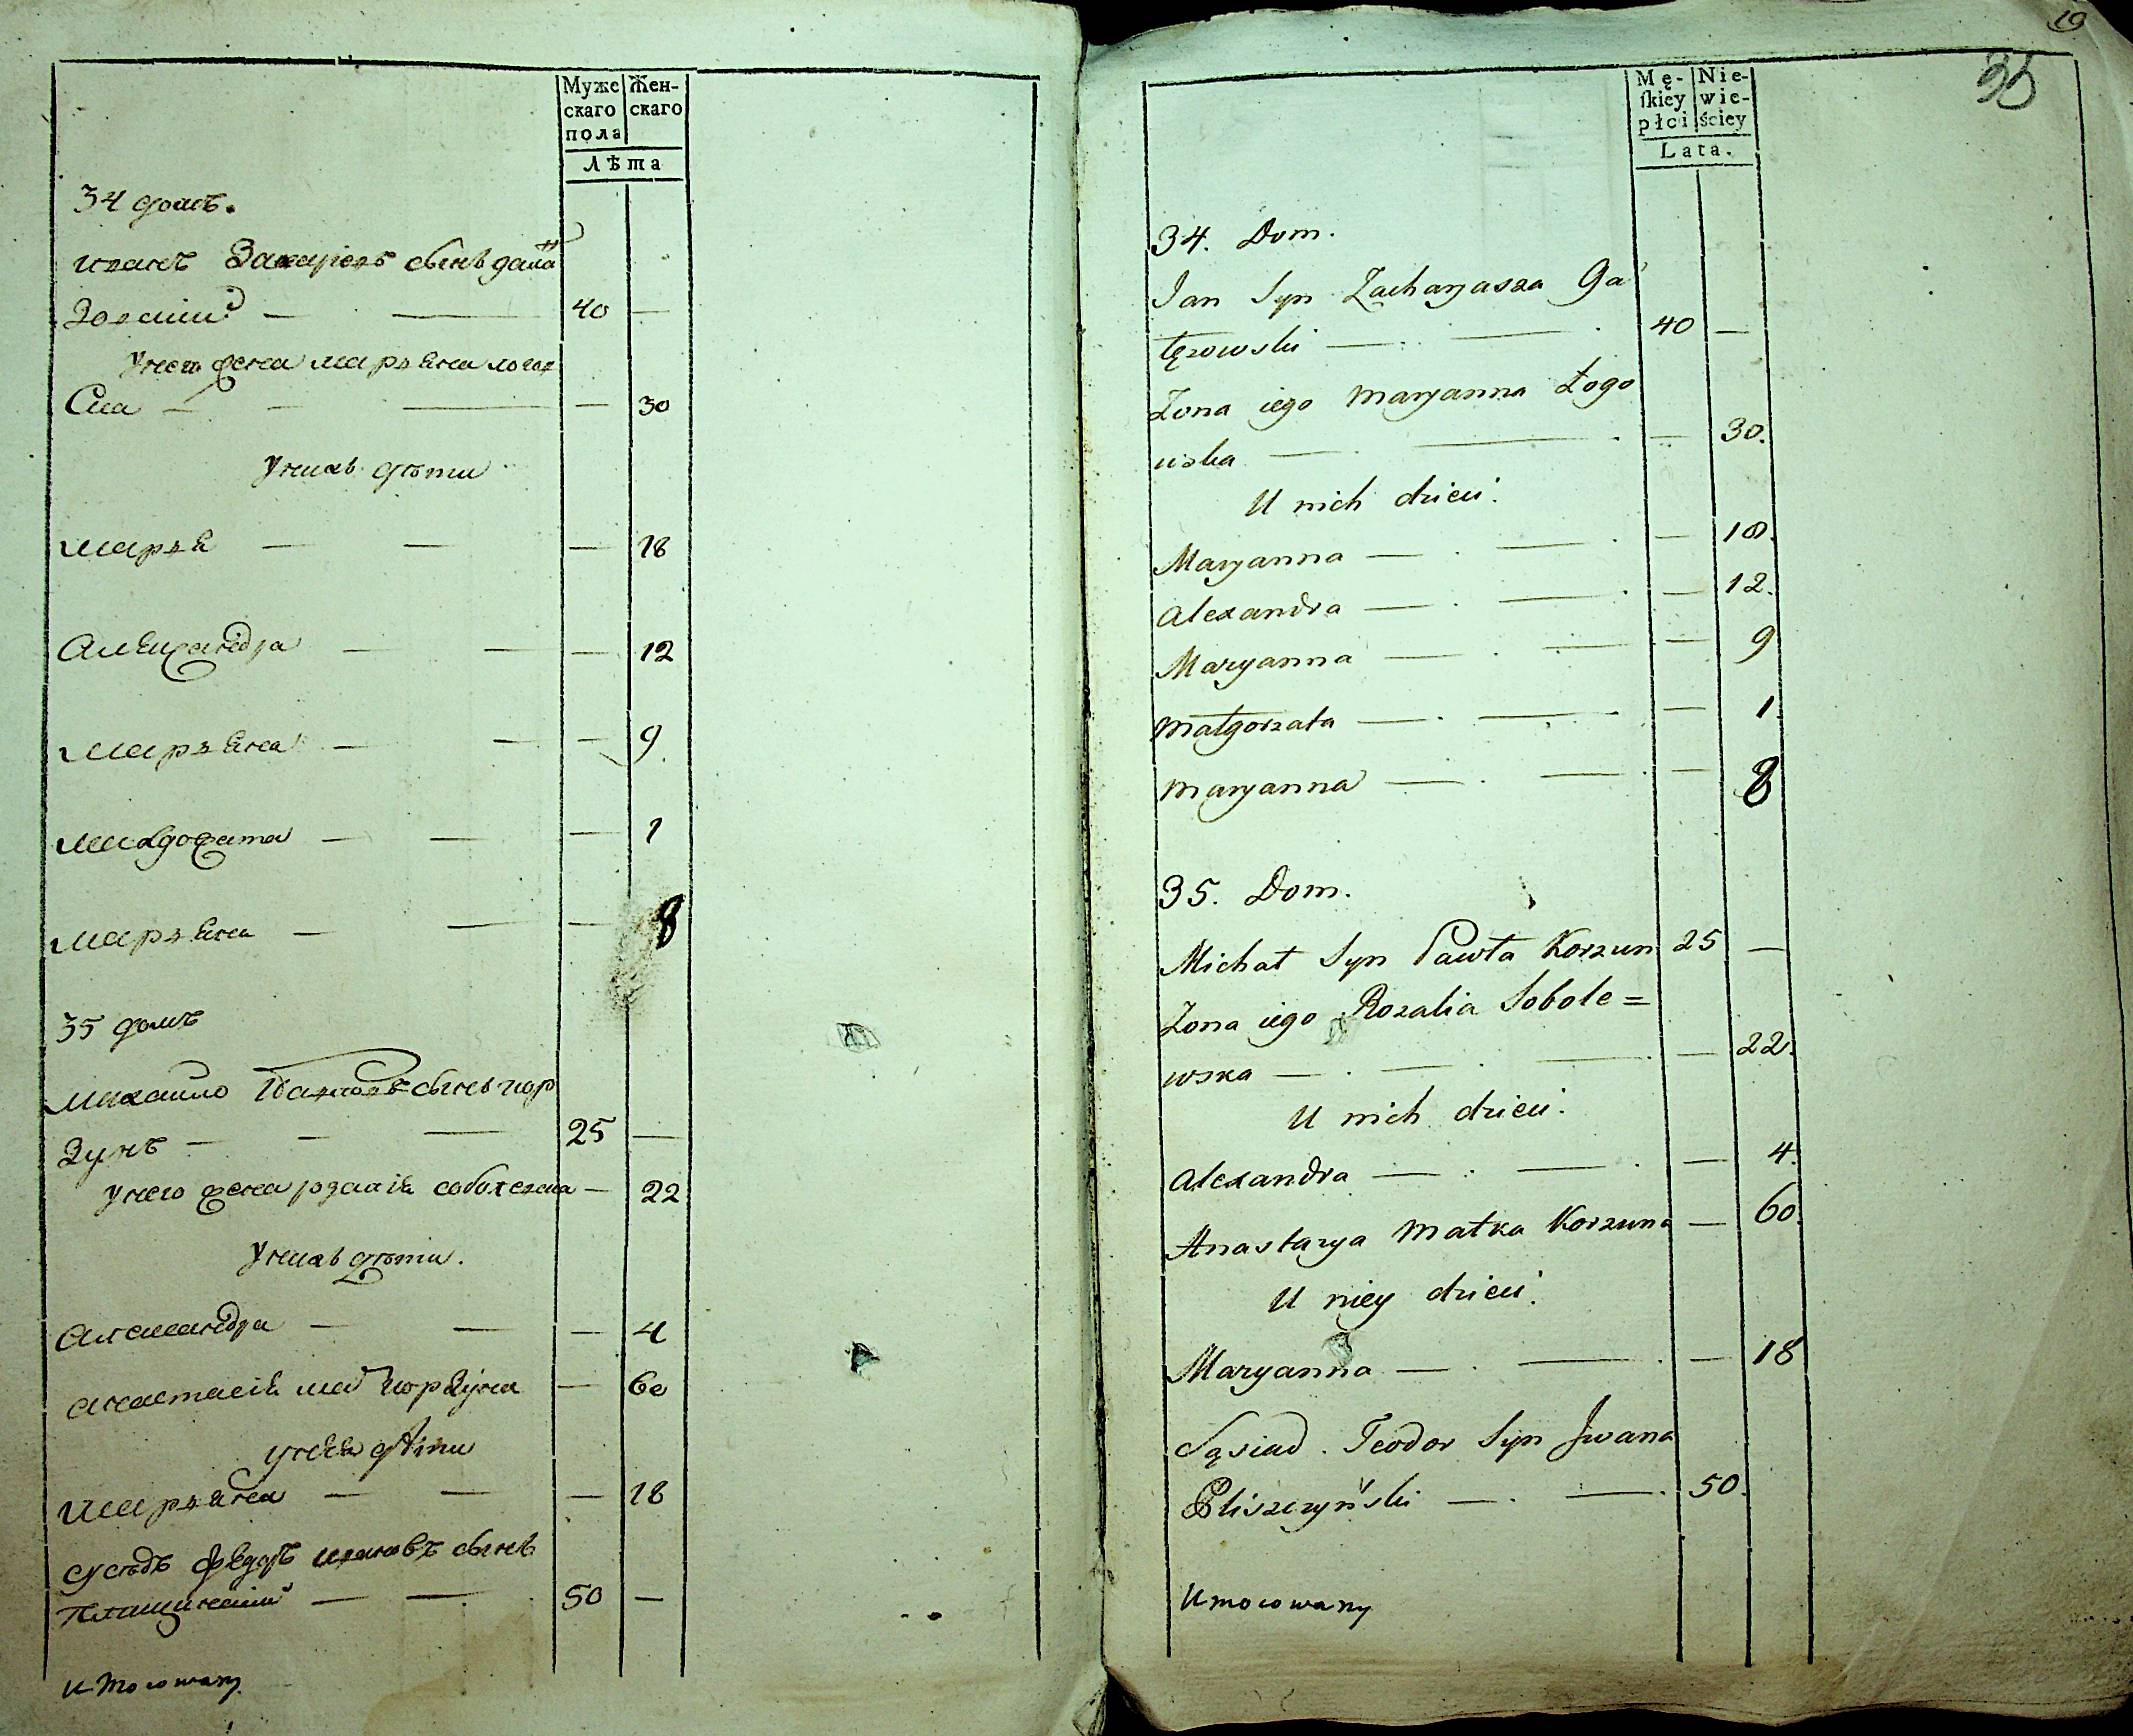 Муже
скаго
пола
Жен-
скаго
Лѣта
34 домъ.
Иванъ Захаріевъ сынъ
40 —
У него жена Марьяна
30
У нихъ дѣти
Марья — — — 18
Александра — — — 12
Марьяна — — — 9
— — — 1
Марьяна — — — 8
35 домъ
Михайло Павловъ сынъ Кор
зунъ — — — 25 —
У него жена Розалія — 22
У нихъ дѣти.
Александра — — — 4
Анастасія Корзуна — 60
У нея дѣти
Марьяна — — — 18
Сусѣдъ Федоръ Ивановъ сынъ
— — 50 —
Umocowany
19
35
Mę-
ſkiey
płci
Nie-
wie-
ściey
Lata.
34. Dom.
Jan Syn Zacharyasza Ga
40 —
Zona iego Maryanna Łogo
wska — — — 30.
U nich dzieci.
Maryanna — . — . — 18.
Alexandra — . — . — 12.
Maryanna — . — . — 9
Małgorzata — . — . — 1.
Maryanna — . — . — 8
35. Dom.
Michał Syn Pawła Korzun 25 —
Zona iego Rozalia Sobole=
wska — . — . — . — 22.
U nich dzieci.
Alexandra — . — . — 4.
Anastazya Matka Korzuna — 60.
U niey dzieci.
Maryanna — . — . — 18
Sąsiad . Teodor Syn Jwana
— . — . 50.
Umocowany